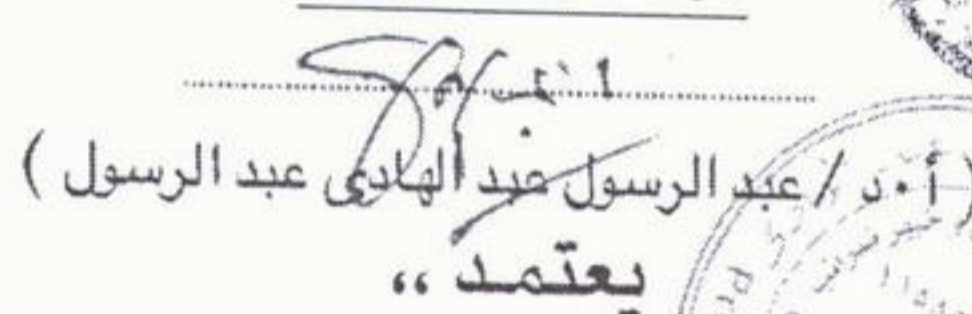 ( أ.د / عبد الرسول عبد الهادى عبد الرسول )
يعتمد ،،